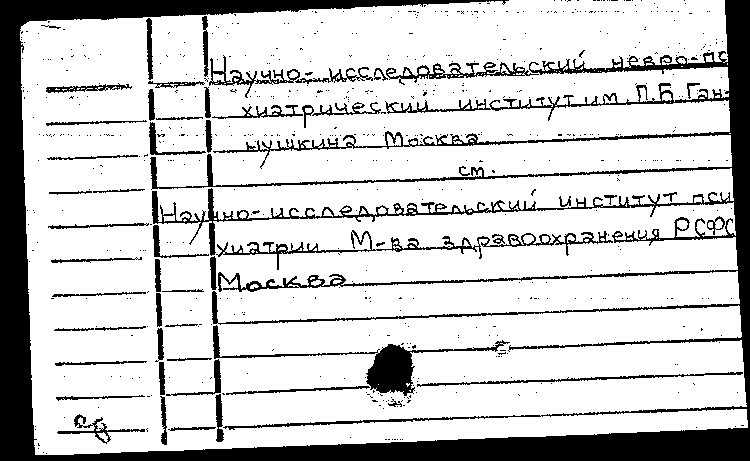 Научно-исследовательский невро-пс
хиатрический институт им. П.Б. Ган-
нушкина Москва
см.
Научно-исследовательский институт пси
хиатрии М-ва здравоохранения РСФС
Москва